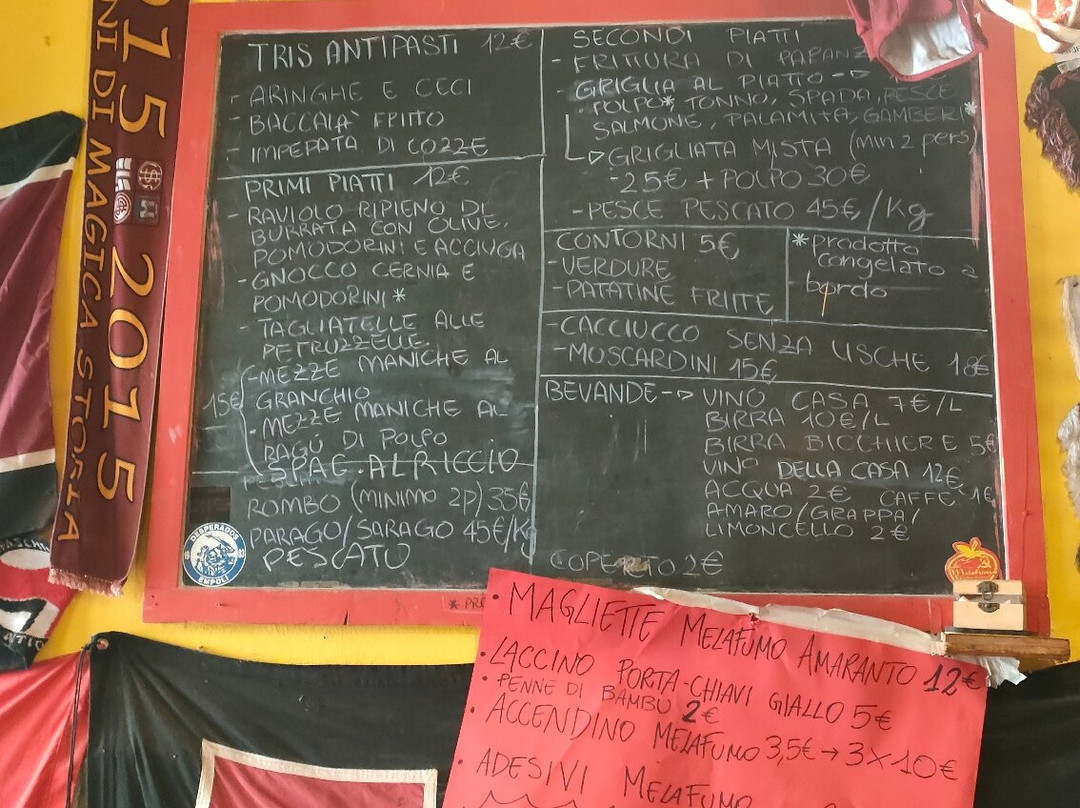 TRIS ANTIPASTI 12€
- ARINGHE E CECI
- BACCALA' FRITTO
- IMPEPATA DI COZZE
PRIMI PIATTI 12€
- RAVIOLO RIPIENO DI
BURRATA CON OLIVE,
POMODORINI E ACCIUGA
- GNOCCO CERNIA E
POMODORINI*
- TAGLIATELLE ALLE
PETRUZZELLE
- MEZZE MANICHE AL
GRANCHIO
15€
- MEZZE MANICHE AL
RAGÙ DI POLPO
- SPAG. AL RICCIO
ROMBO (MINIMO 2P) 35€
PARAGO/SARAGO 45€/Kg
PESCATO
SECONDI PIATTI
- FRITTURA DI
- GRIGLIA AL PIATTO -->
POLPO*, TONNO, SPADA, PESCE
SALMONE, PALAMITA, GAMBERI*
GRIGLIATA MISTA (min 2 pers)
- 25€ + POLPO 30€
- PESCE PESCATO 45€/Kg
CONTORNI 5€
- VERDURE
- PATATINE FRITTE
* prodotto
congelato a
bordo
- CACCIUCCO SENZA LISCHE 18€
- MOSCARDINI 15€
BEVANDE --> VINO CASA 7€/L
BIRRA 10€/L
BIRRA BICCHIERE 5€
VINO DELLA CASA 12€
ACQUA 2€ CAFFE' 1€
AMARO/GRAPPA/
LIMONCELLO 2€
COPERTO 2€
DESPERADOS
EMPOLI
2015
NI DI MAGICA STORIA
* PRO
• MAGLIETTE MELAFUMO AMARANTO 12€
• LACCINO PORTA-CHIAVI GIALLO 5€
• PENNE DI BAMBÙ 2€
• ACCENDINO MELAFUMO 3,5€ → 3x10€
• ADESIVI MELAFUMO